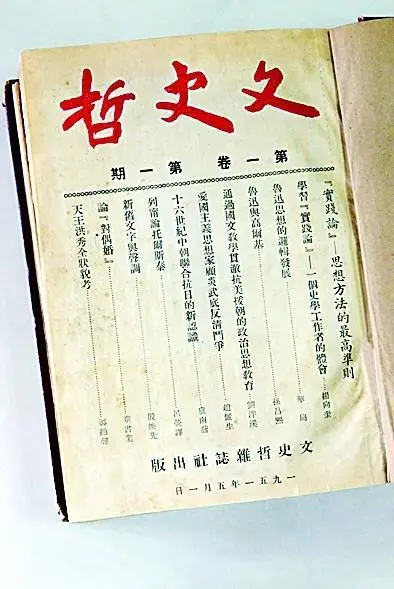 文史哲
第一卷 第一期
『實踐論』思想方法的最高準則
學習『實踐論』——一個史學工作者的體會……楊向奎
魯迅思想的邏輯發展……華崗
魯迅與高爾基……孫昌熙
通過國文教學貫徹抗美援朝的政治思想教育……劉泮溪
愛國主義思想家顧炎武底反清鬥爭……趙儷生
十六世紀中朝聯合抗日的新認識……盧南喬
列甯論托爾斯泰……呂熒譯
新舊文字與聲調……殷煥先
論『對偶婚』……童書業
天王洪秀全狀貌考……鄭鶴聲
文史哲雜誌社出版
一九五一年五月一日